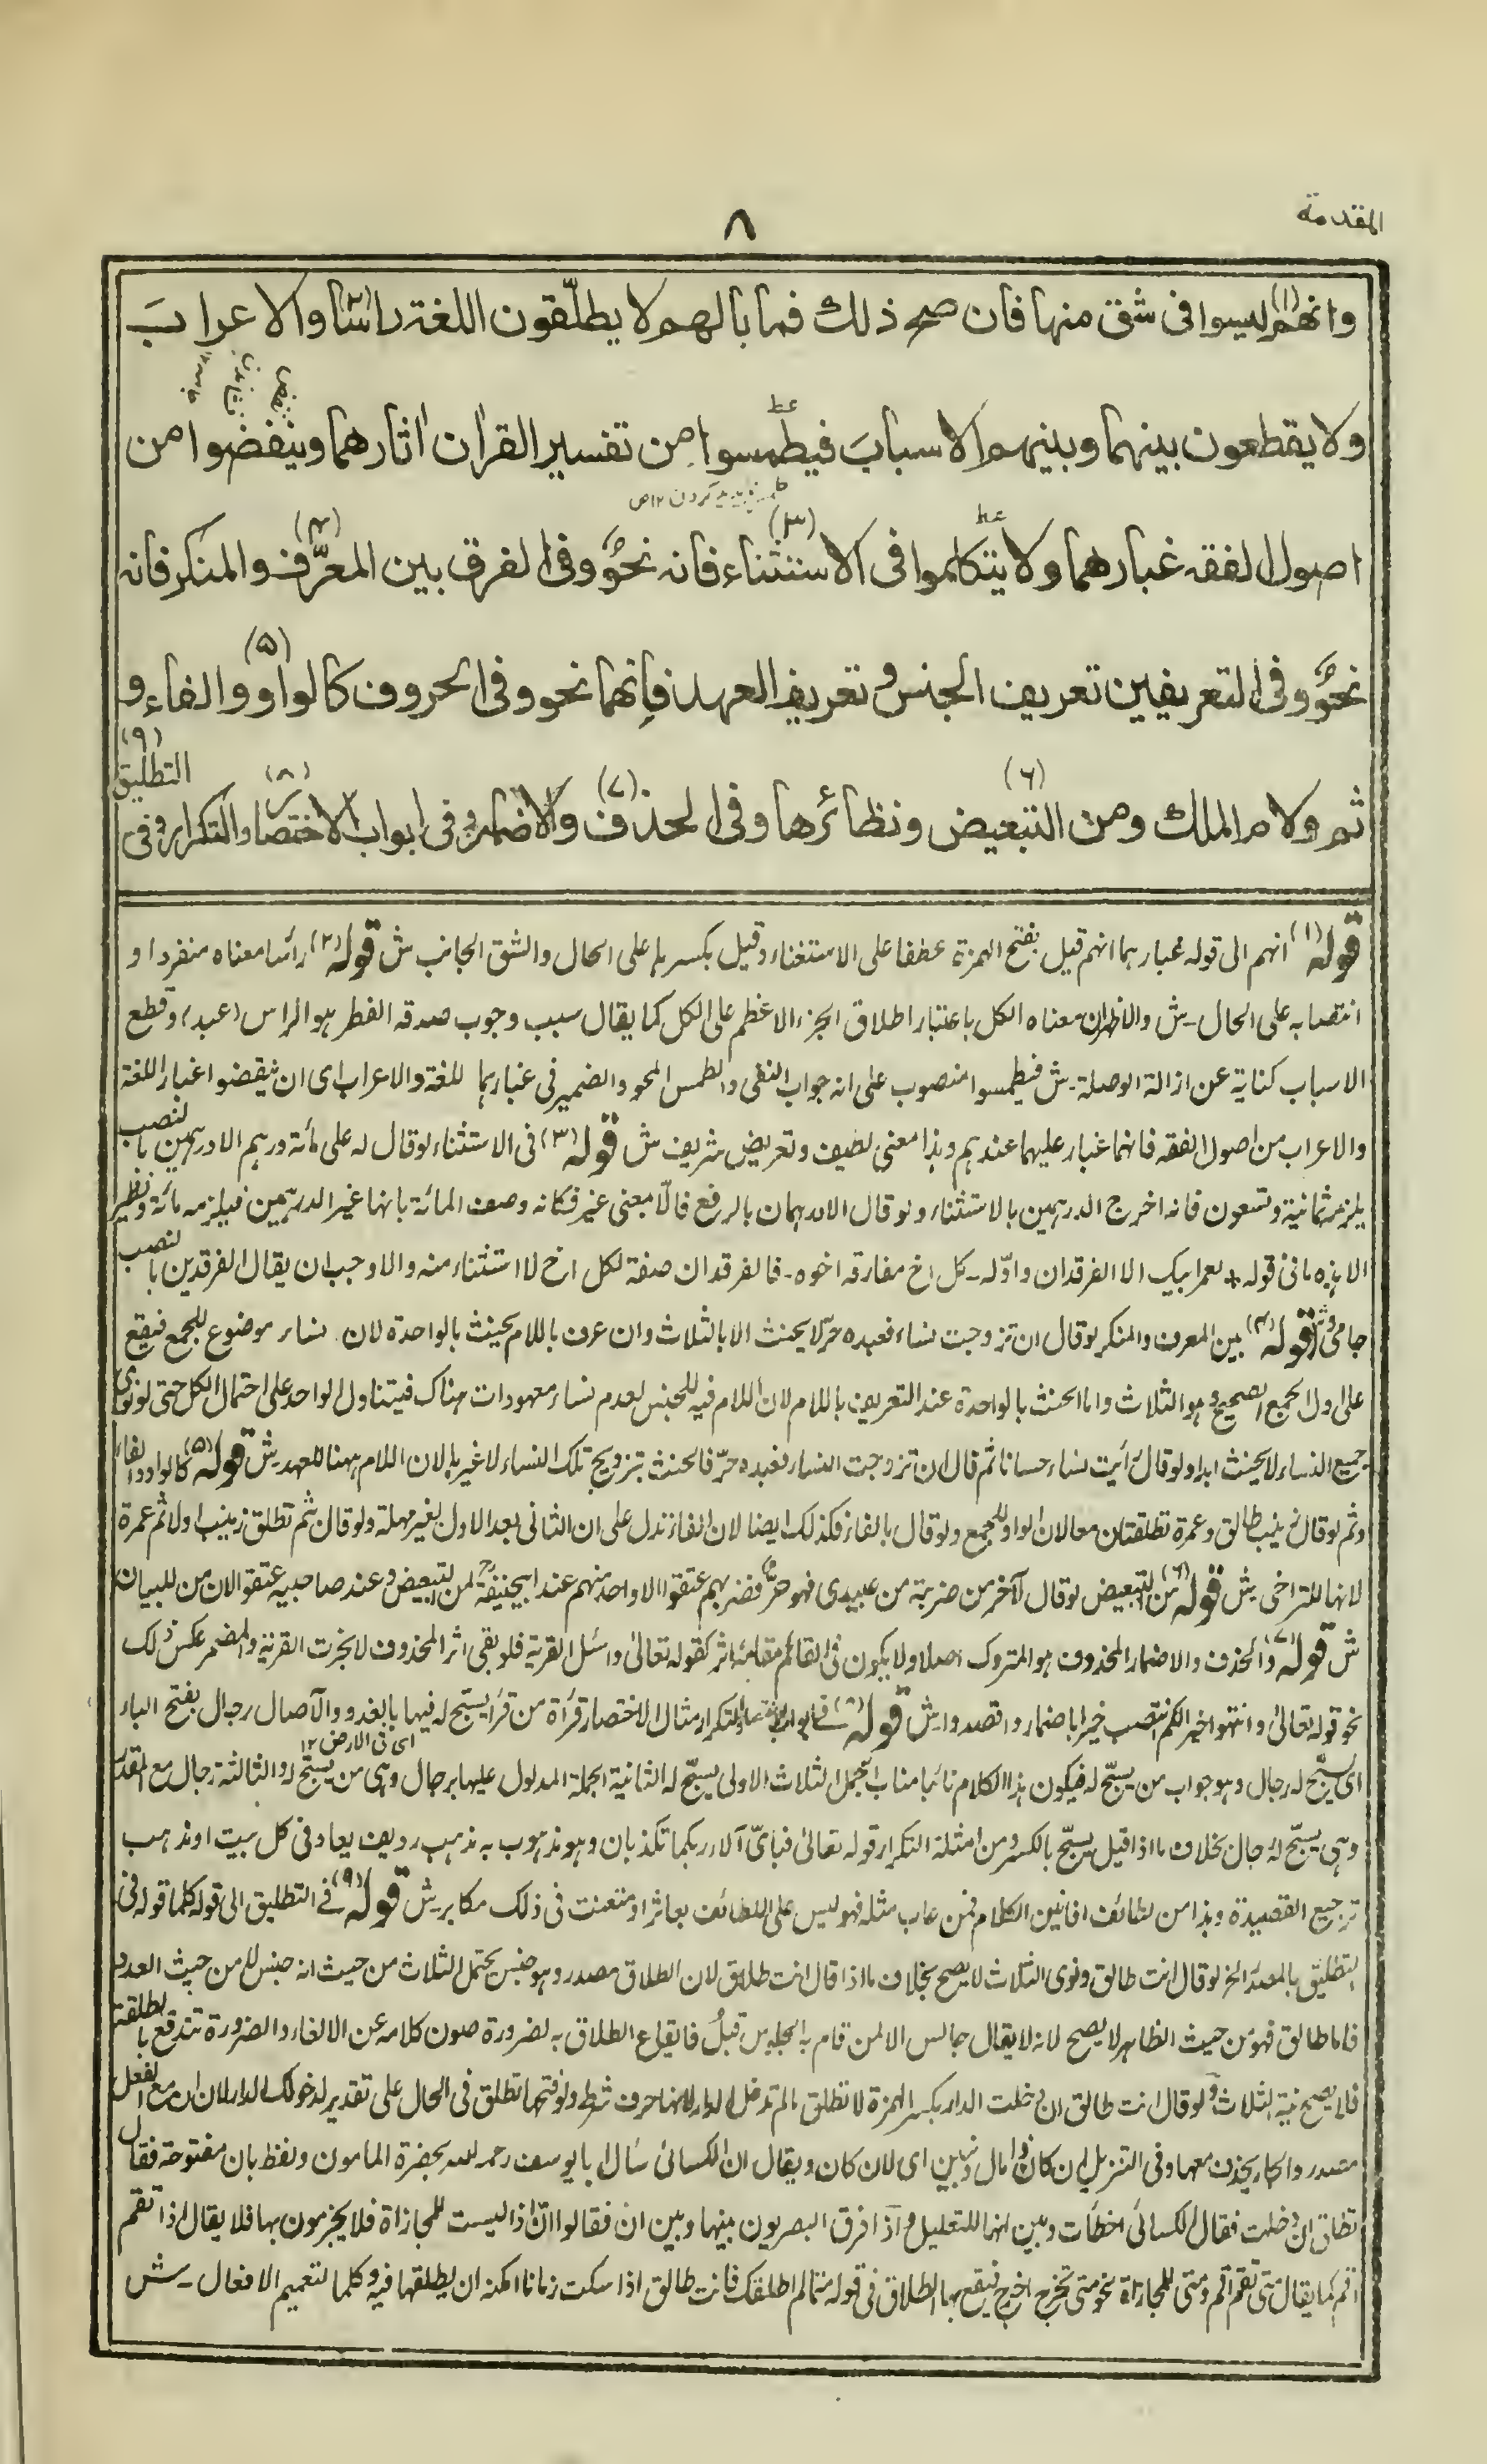 المقدمة
٨
وانهم(١) ليسوا فى شق منها فان صح ذلك فما بالهم لا يطلّقون اللغة راسًا(٢) والاعراب
ولا يقطعون بينهما وبينهم الاسبابَ فيطمسوا من تفسير القران اٰثارهما وينفضوا من
اصول الفقه غبارهما ولا يتكلموا فى الاستثناء(٣) فانه نحوٌ وفى الفرق بين المعرَّف(٤) والمنكر فانه
نحوٌ وفى التعريفين تعريف الجنس وتعريف العهد فإنهما نحو وفى الحروف كالواو(٥) والفاء و
ثم ولام الملك ومن التبعيض(٦) ونظائرها وفى الحذف(٧) والاضمار وفى ابواب الاختصار(٨) والتكرار وفى
التطليق(٩)
قوله(١) انهم الى قوله غبارهما انهم قيل بفتح الهمزة عطفا على الاستغناء وقيل بكسرها على الحال والشق الجانب ش قوله(٢) رأسا معناه منفردا و
انتصابه على الحال ـ ش والاظهر ان معناه الكل باعتبار اطلاق الجزء الاعظم على الكل كما يقال سبب وجوب صدقة الفطر هو الراس (عبد) وقطع
الاسباب كناية عن ازالة الوصلة ـ ش فيطمسوا منصوب على انه جواب النفى والطمس المحو والضمير فى غبارهما للغة والاعراب اى ان ينفضوا غبار اللغة
والاعراب من اصول الفقه فانهما غبار عليهما عندهم وهذا معنى لطيف وتعريض شريف ش قوله(٣) فى الاستثناء لو قال له على مائة درهم الا درهمين بالنصب
يلزمه ثمانية وتسعون فانه اخرج الدرهمين بالاستثناء ولو قال الا درهمان بالرفع فالّا بمعنى غير فكانه وصف المائة بانها غير الدرهمين فيلزمه مائة ونظير
الا هذه ما فى قوله + لعمر ابيك الا الفرقدان واوّله ـ كل اخ مفارقه اخوه ـ فالفرقدان صفة لكل اخ لا استثناء منه والا وجب ان يقال الفرقدين بالنصب
جامى وش قوله(٤) بين المعرف والمنكر لو قال ان تزوجت نساء فعبده حرّ لا يحنث الا بالثلاث وان عرف باللام يحنث بالواحدة لان نساء موضوع للجمع فيقع
على اول الجمع الصحيح وهو الثلاث واما الحنث بالواحدة عند التعريف باللام لان اللام فيه للجنس لعدم نساء معهودات هناك فيتناول الواحد على احتمال الكل حتى لو نوى
جميع النساء لا يحنث ابدا ولو قال رأيت نساء حسانا ثم قال ان تزوجت النساء فعبده حرّ فالحنث بتزويج تلك النساء لا غيرها لان اللام ههنا للعهد ش قوله(٥) كالواو والفاء
وثم لو قال زينب طالق وعمرة تطلقتان معا لان الواو للجمع ولو قال بالفاء فكذلك ايضا لان الفاء تدل على ان الثانى بعد الاول بغير مهلة ولو قال ثم تطلق زينب اولا ثم عمرة
لانها للتراخى ش قوله(٦) من التبعيض لو قال لآخر من ضربته من عبيدى فهو حرٌّ فضربهم عتقوا الا واحد منهم عند ابيحنيفةؒ لمن التبعيض وعند صاحبيه عتقوا لان من للبيان
ش قوله(٧) والحذف والاضمار المحذوف هو المتروك اصلا ولا يكون فى القائم مقامه اثر كقوله تعالىٰ واسئل القرية فلو بقى اثر المحذوف لانجرت القرية والمضمر عكس ذلك
نحو قوله تعالىٰ وانتهوا خيرا لكم انتصب خيرا باضمار واقصدوا ش قوله(٨) فى ابواب الاختصار والتكرار مثال الاختصار قرأة من قرأ يسبّح له فيها بالغدو والآصال رجال بفتح الباء
اى يسبّح له رجال وهو جواب من يسبّح له فيكون هذا الكلام نائبا مناب الجمل الثلاث الاولى يسبّح له الثانية الجملة المدلول عليها برجال وهى من يسبّح له والثالثة رجال مع المقدر
اى فى الارض ١٢
وهى يسبّح له رجال بخلاف ما اذا قيل يسبّح بالكسر ومن امثلة التكرار قوله تعالىٰ فباىّ آلاء ربكما تكذبان وهو مذهوب به مذهب رديف يعاد فى كل بيت او مذهب
ترجيع القصيدة وهذا من لطائف افانين الكلام فمن عاب مثله فهو ليس على اللطائف بعاثر او متعنت فى ذلك مكابر ش قوله(٩) فى التطليق الى قوله كلما قوله فى
التطليق بالمصدر الخ لو قال انت طالق ونوى الثلاث لا يصح بخلاف ما اذا قال انت طلاق لان الطلاق مصدر وهو جنس يحتمل الثلاث من حيث انه جنس لا من حيث العدد
فاما طالق فهو من حيث الظاهر لا يصح لانه لا يقال جالس الا لمن قام به الجلوس قبلُ فايقاع الطلاق به لضرورة صون كلامه عن الالغاء والضرورة تندفع بالطلقة
فلا يصح نية الثلاث ولو قال انت طالق ان دخلت الدار بكسر الهمزة لا تطلق ما لم تدخل الدار لانها حرف شرط ولو فتحها تطلق فى الحال على تقدير لدخولك الدار لان ان مع الفعل
مصدر والجار يحذف معها وفى التنزيل ان كان ذا مال وبنين اى لان كان ويقال ان الكسائى سأل ابا يوسف رحمه الله بحضرة المامون ولفظ بان مفتوحة فقال
تطلق ان دخلت فقال الكسائى اخطأت وبين انها للتعليل واذا فرق البصريون بينها وبين ان فقالوا انّ اذا ليست للمجازاة فلا يجزمون بها فلا يقال اذا تقم
اقم كما يقال متى تقم اقم ومتى للمجازاة نحو متى تخرج اخرج فيقع بها الطلاق فى قوله متى لم اطلقك فانت طالق اذا سكت زمانا امكنه ان يطلقها فيه وكلما لتعميم الافعال ـ ش